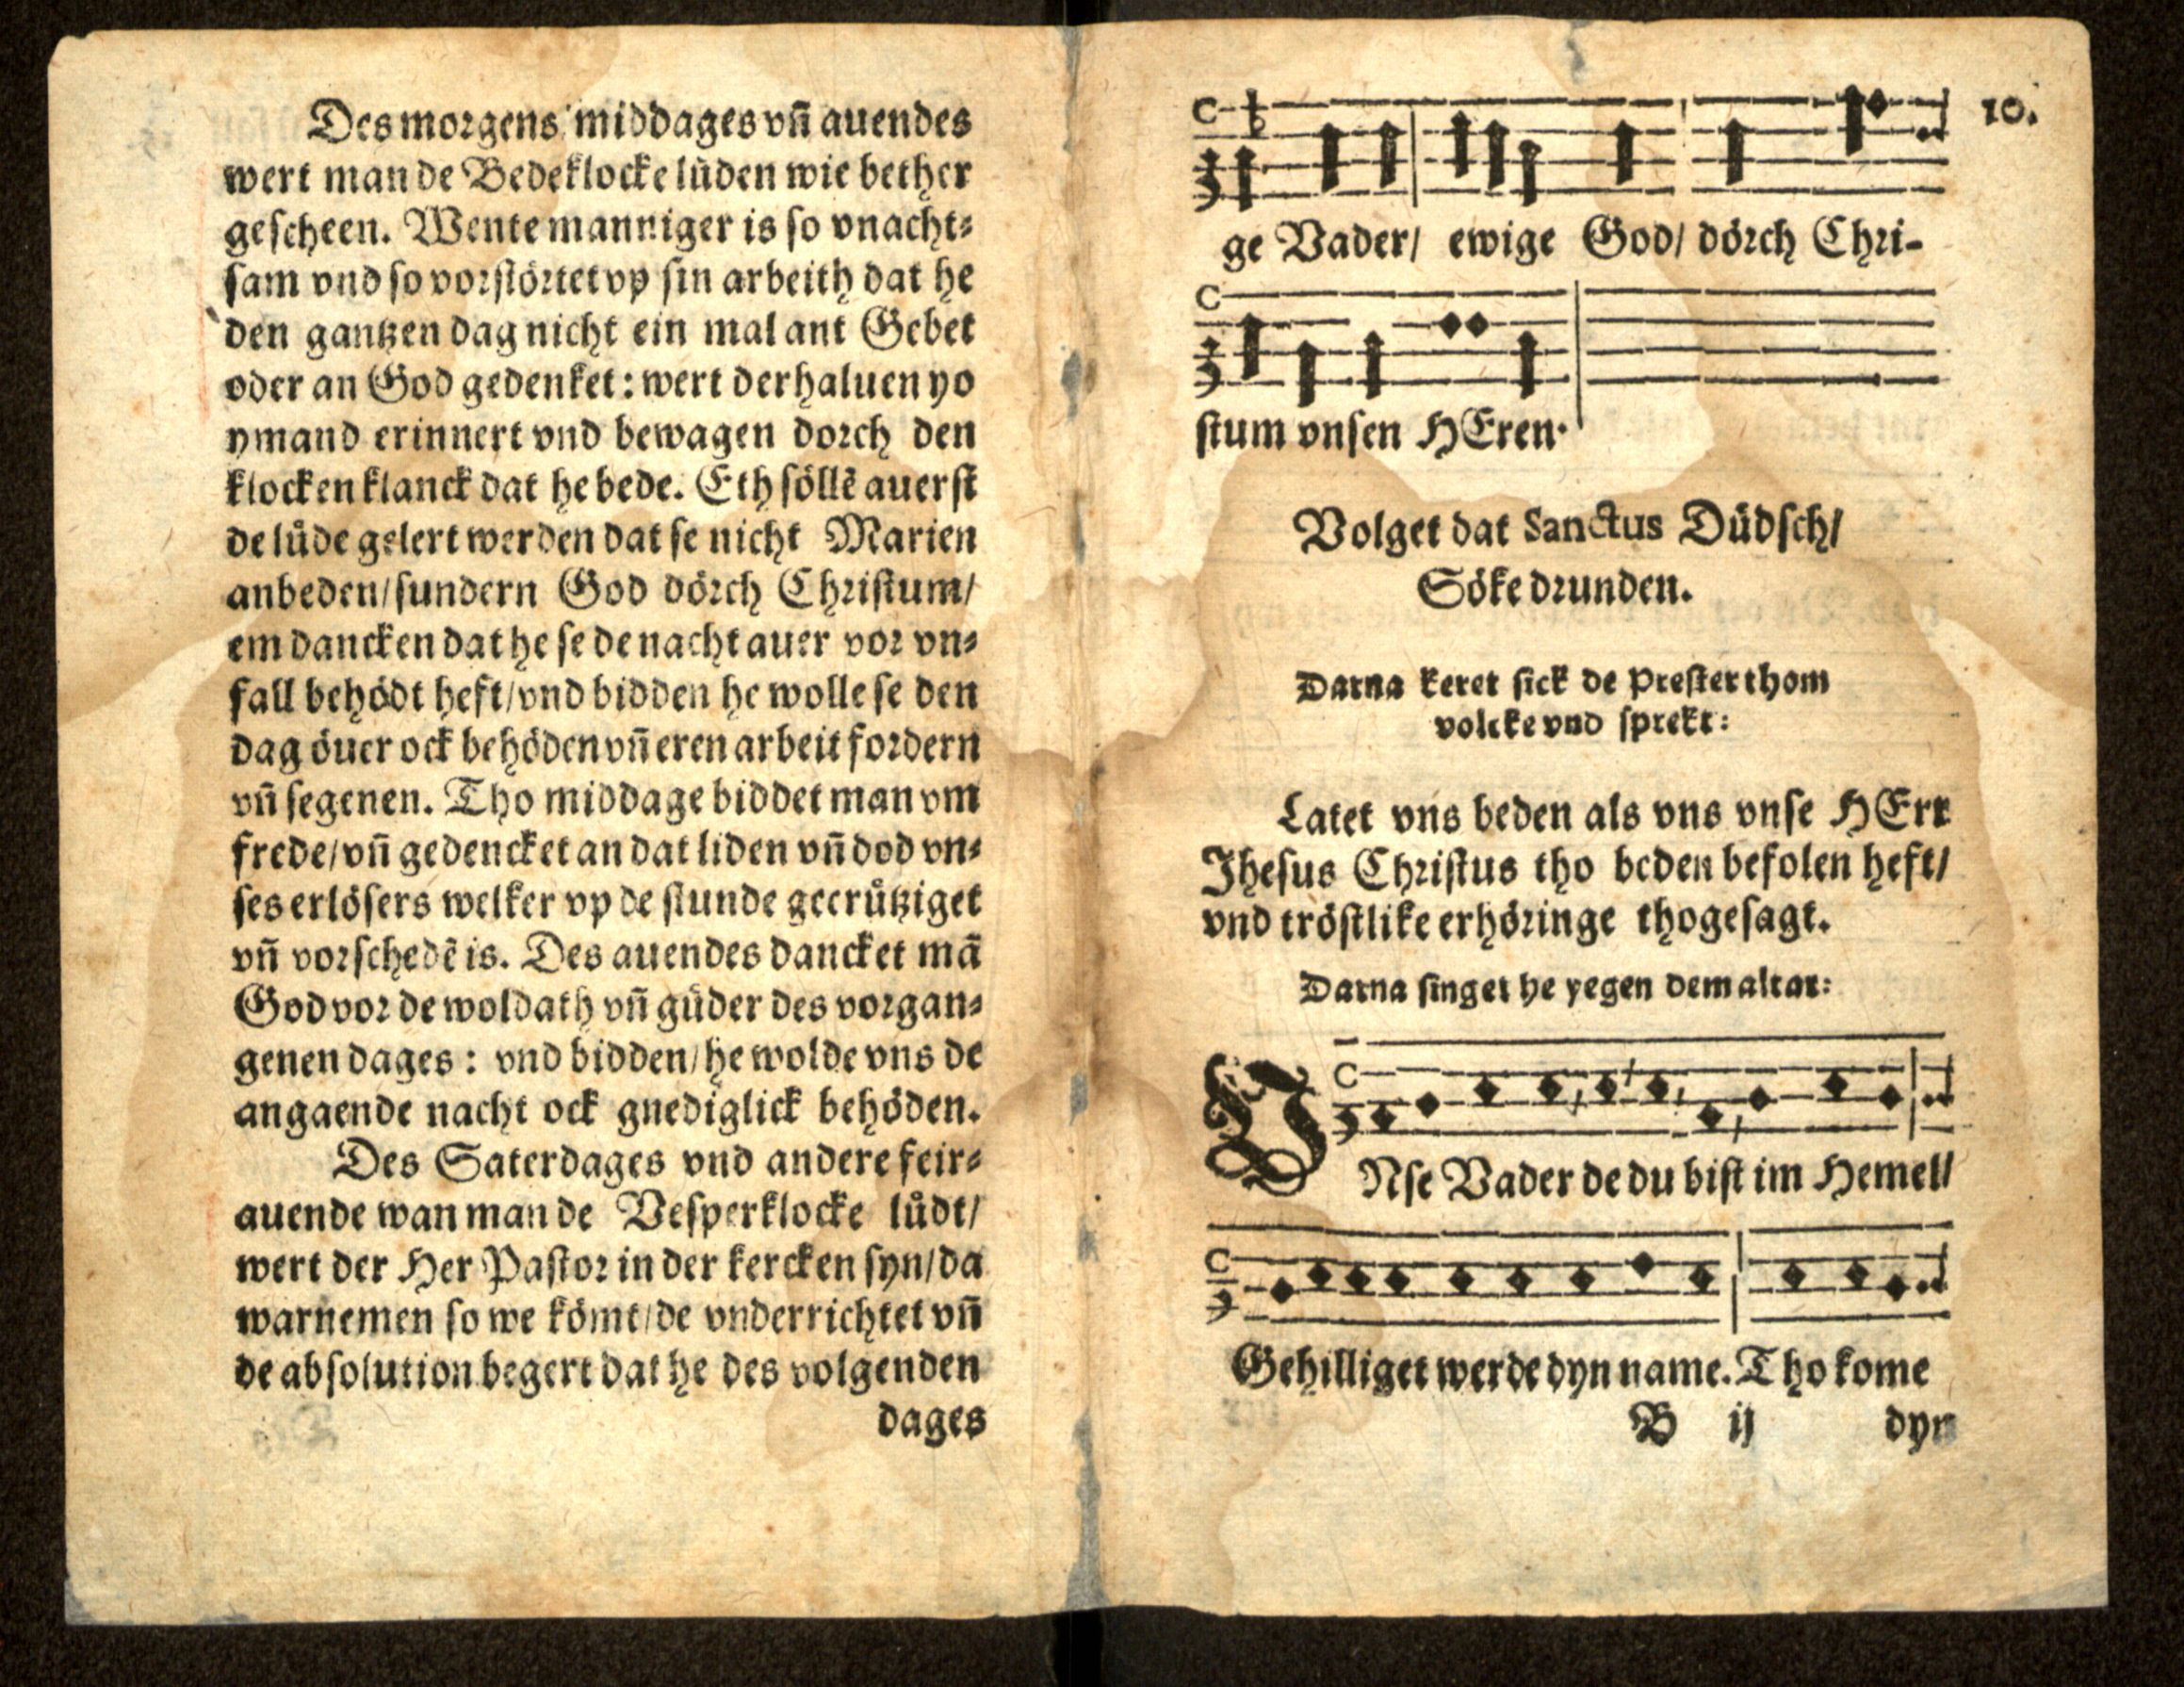 Des morgens middages vn̄ auendes
wert man de Bedeklocke lüden wie bether
gescheen. Wente manniger is so vnacht⸗
sam vnd so vorstörtet vp sin arbeith dat he
den gantzen dag nicht ein mal ant Gebet
oder an God gedenket: wert derhaluen yo
ymand erinnert vnd bewagen dorch den
klocken klanck dat he bede. Eth söllē auerst
de lüde gelert werden dat se nicht Marien
anbeden/ sundern God dörch Christum/
em dancken dat he se de nacht auer vor vn⸗
fall behödt heft/ vnd bidden he wolle se den
dag öuer ock behöden vn̄ eren arbeit fordern
vn̄ segenen. Tho middage biddet man vm
frede/ vn̄ gedencket an dat liden vn̄ dod vn⸗
ses erlösers welker vp de stunde gecrütziget
vn̄ vorschedē is. Des auendes dancket mā
God vor de woldath vn̄ güder des vorgan⸗
genen dages: vnd bidden/ he wolde vns de
angaende nacht ock gnediglick behöden.
Des Saterdages vnd andere feir⸗
auende wan man de Vesperklocke lüdt/
wert der Her Pastor in der kercken syn/ da
warnemen so we kömt/ de vnderrichtet vn̄
de absolution begert dat he des volgenden
dages
10.
ge Vader/ ewige God/ dörch Chri-
stum vnsen HEren.
Volget dat Sanctus Düdsch/
Söke drunden.
Darna keret sick de prester thom
volcke vnd sprekt:
Latet vns beden als vns vnse HErr
Jhesus Christus tho beden befolen heft/
vnd tröstlike erhöringe thogesagt.
Darna singet he yegen dem altar:
VNse Vader de du bist im Hemel/
Gehilliget werde dyn name. Tho kome
B ij dyn